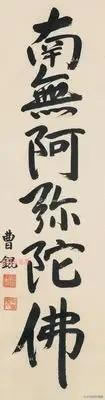 南無阿弥陀佛
曹錕